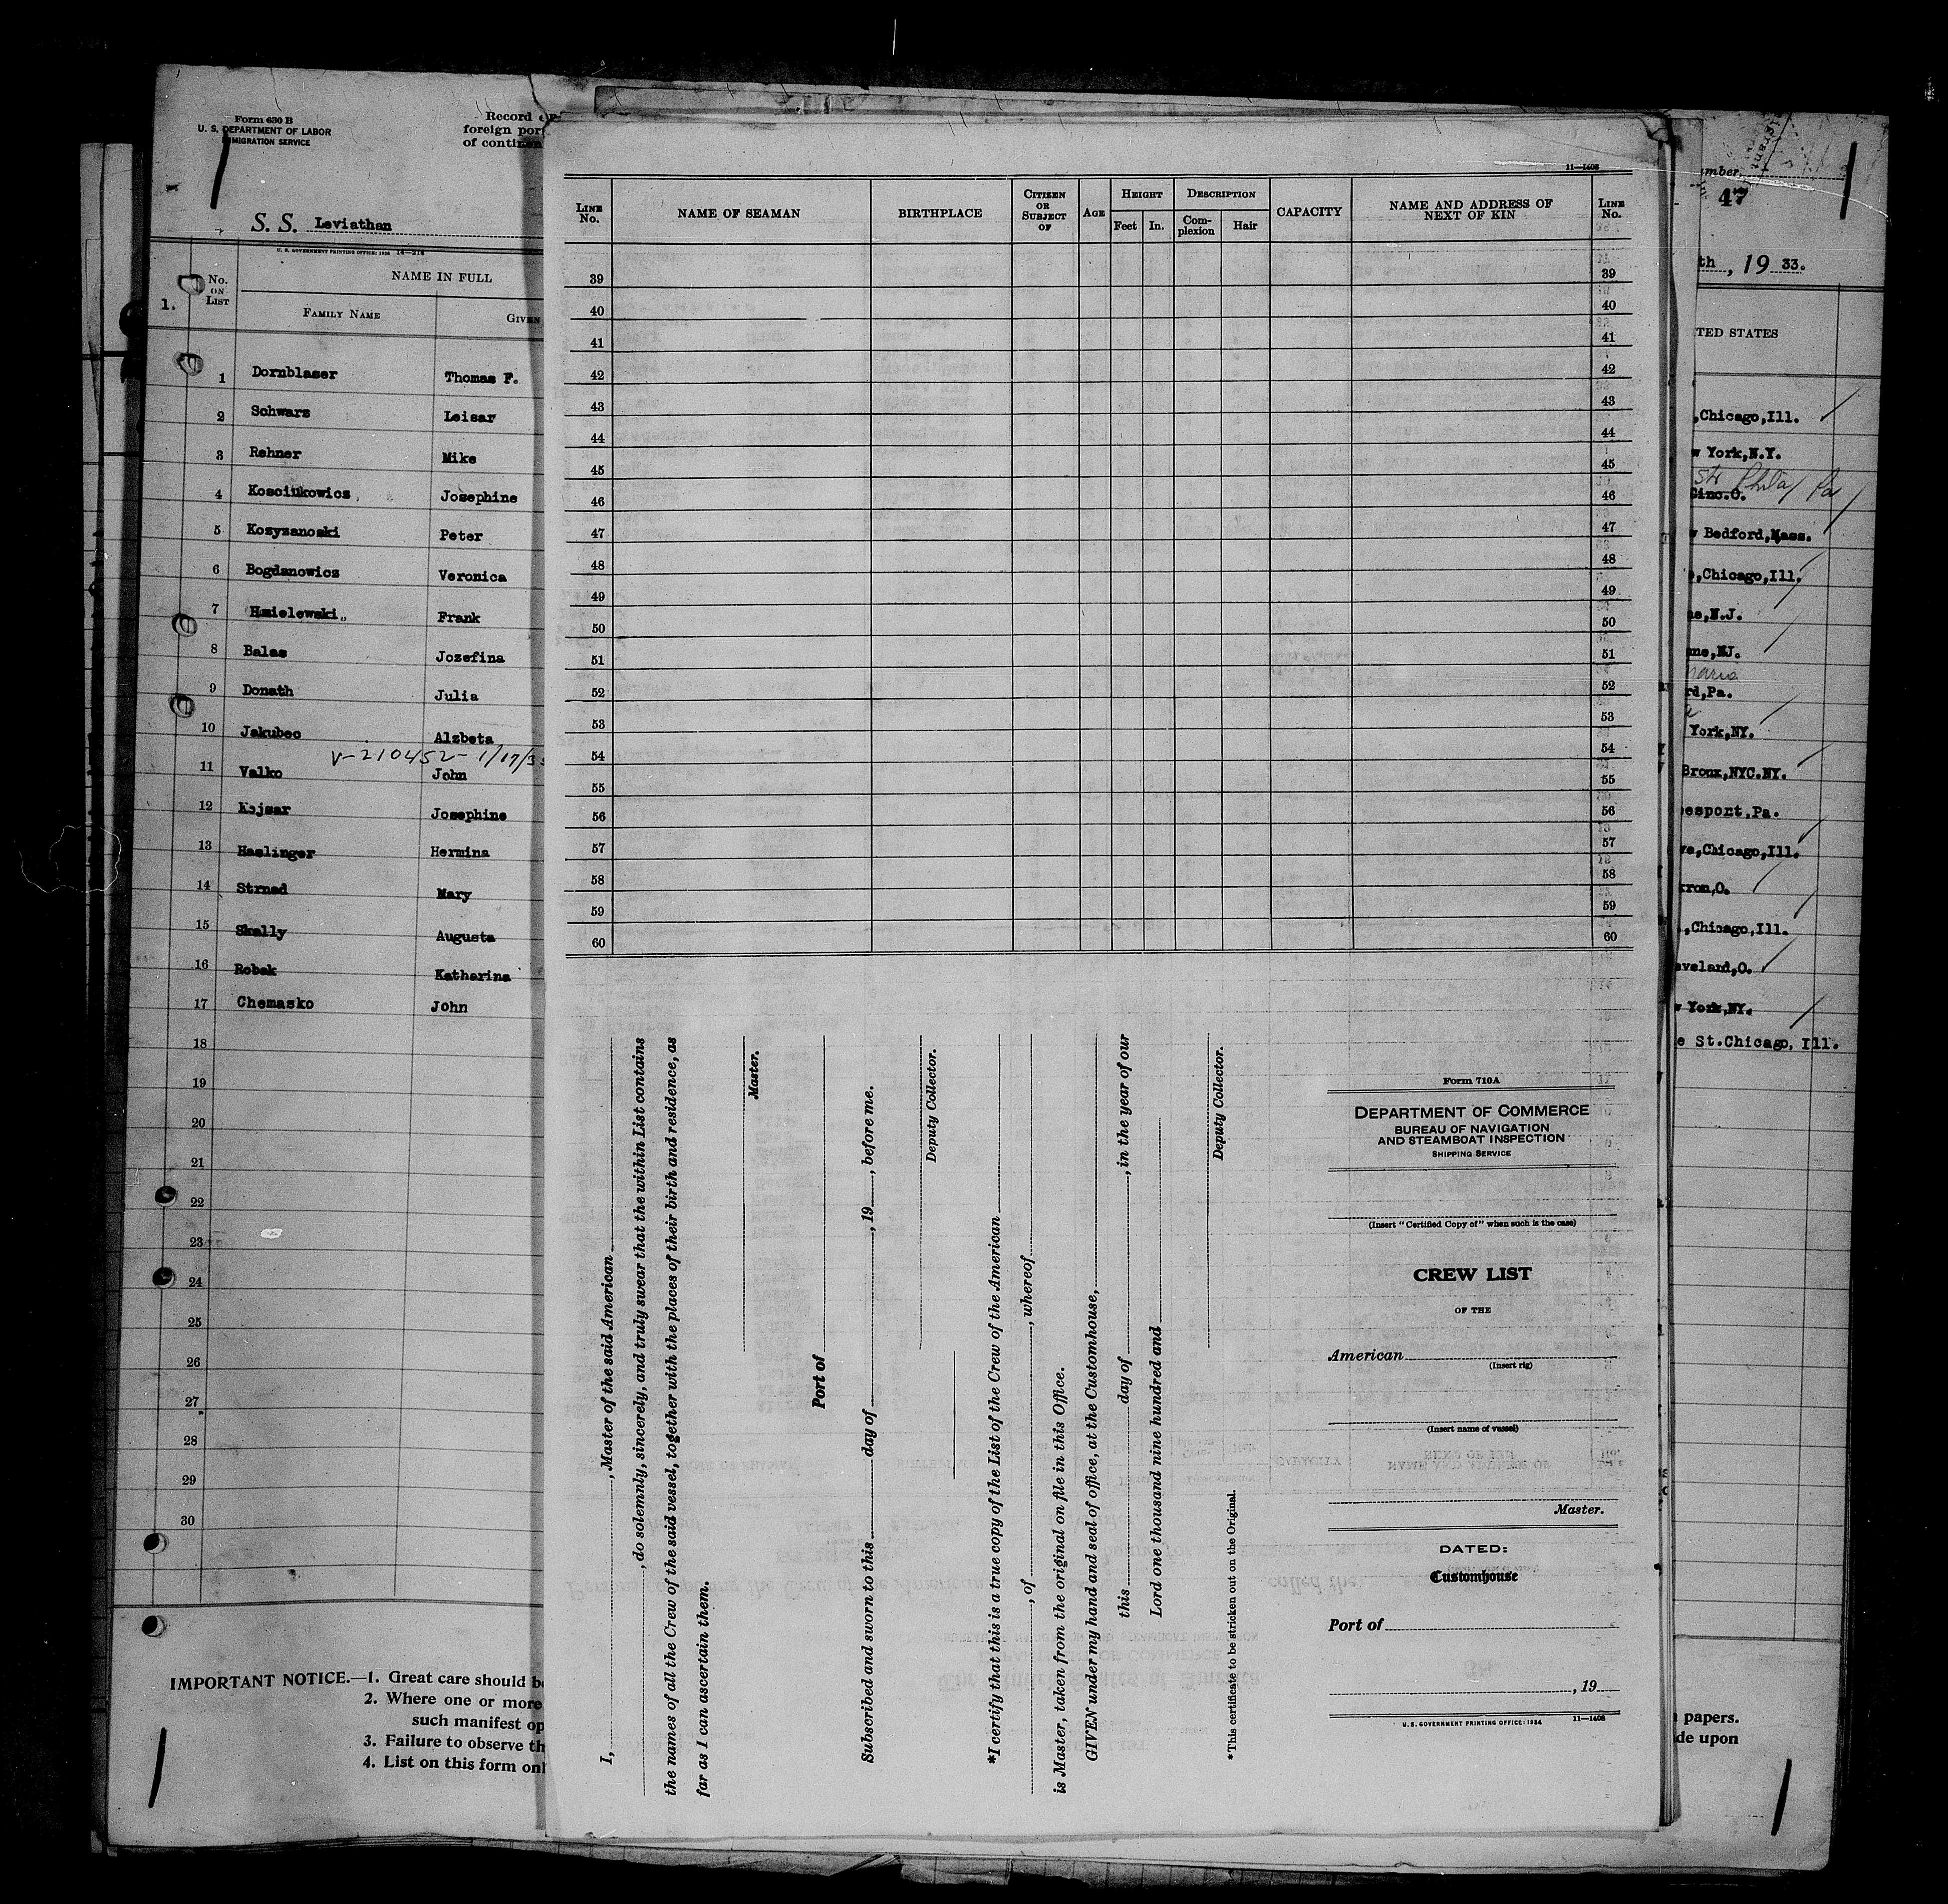 Form 630 B
U. S. DEPARTMENT OF LABOR
IMMIGRATION SERVICE
Record
foreign port
of continen
S. S. Leviathan
U. S. GOVERNMENT PRINTING OFFICE: 1930 14—214
1.
No. ON LIST
NAME IN FULL
FAMILY NAME
GIVEN
1 Dornblaser Thomas F.
2 Schwarz Leisar
3 Rehner Mike
4 Kosciukowicz Josephine
5 Kozyzanoski Peter
6 Bogdanowicz Veronica
7 Hmielewski Frank
8 Balas Jozefina
9 Donath Julia
10 Jakubec Alzbeta
V-210452- 1/17/3
11 Valko John
12 Kojsar Josephine
13 Haslinger Hermina
14 Strnad Mary
15 Skally Augusta
16 Robak Katharina
17 Chemasko John
18
19
20
21
22
23
24
25
26
27
28
29
30
IMPORTANT NOTICE.—1. Great care should be
2. Where one or more
such manifest op
3. Failure to observe th
4. List on this form onl
11—1408
LINE No.
NAME OF SEAMAN
BIRTHPLACE
CITIZEN OR SUBJECT OF
AGE
HEIGHT
Feet In.
DESCRIPTION
Com-plexion Hair
CAPACITY
NAME AND ADDRESS OF NEXT OF KIN
LINE No.
39 39
40 40
41 41
42 42
43 43
44 44
45 45
46 46
47 47
48 48
49 49
50 50
51 51
52 52
53 53
54 54
55 55
56 56
57 57
58 58
59 59
60 60
I, , Master of the said American
, do solemnly, sincerely, and truly swear that the within List contains
the names of all the Crew of the said vessel, together with the places of their birth and residence, as
far as I can ascertain them.
Master.
Port of
Subscribed and sworn to this day of , 19 , before me.
Deputy Collector.
*I certify that this is a true copy of the List of the Crew of the American
, of , whereof
is Master, taken from the original on file in this Office.
GIVEN under my hand and seal of office, at the Customhouse,
this day of , in the year of our
Lord one thousand nine hundred and
Deputy Collector.
*This certificate to be stricken out on the Original.
Form 710A
DEPARTMENT OF COMMERCE
BUREAU OF NAVIGATION
AND STEAMBOAT INSPECTION
SHIPPING SERVICE
(Insert "Certified Copy of" when such is the case)
CREW LIST
OF THE
American
(Insert rig)
(Insert name of vessel)
Master.
DATED:
Customhouse
Port of
, 19
U.S. GOVERNMENT PRINTING OFFICE: 1934 11—1408
mber
47
th , 19 33.
TED STATES
,Chicago,Ill.
w York,N.Y.
Str Phila Pa
Cinc.O.
w Bedford,Mass.
,Chicago,Ill.
ne,N.J.
ne,NJ.
rd,Pa.
York,NY.
Bronx,NYC.NY.
eesport,Pa.
ve,Chicago,Ill.
kron,O.
,Chicago,Ill.
eveland,O.
w York,NY.
e St.Chicago, Ill.
papers.
de upon